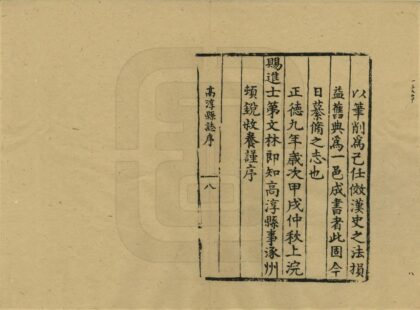 以筆削為己任倣漢史之法損
益舊典為一邑成書者此固今
日纂脩之志也
正德九年歲次甲戌仲秋上浣
賜進士第文林郎知高淳縣事涿州
頓銳叔養謹序
高淳縣誌序 八